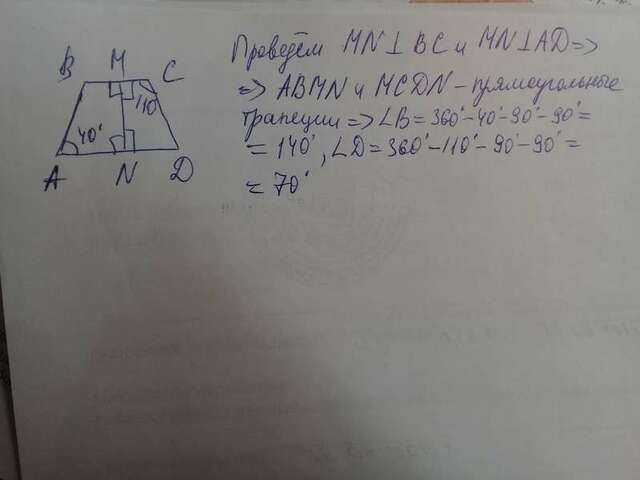 Проведём MN⊥BC и MN⊥AD=>
=> ABMN и MCDN - прямоугольные
трапеции => ∠B = 360°-40°-90°-90°=
= 140°, ∠D = 360°-110°-90°-90°=
= 70°
B M C
110
40°
A N D